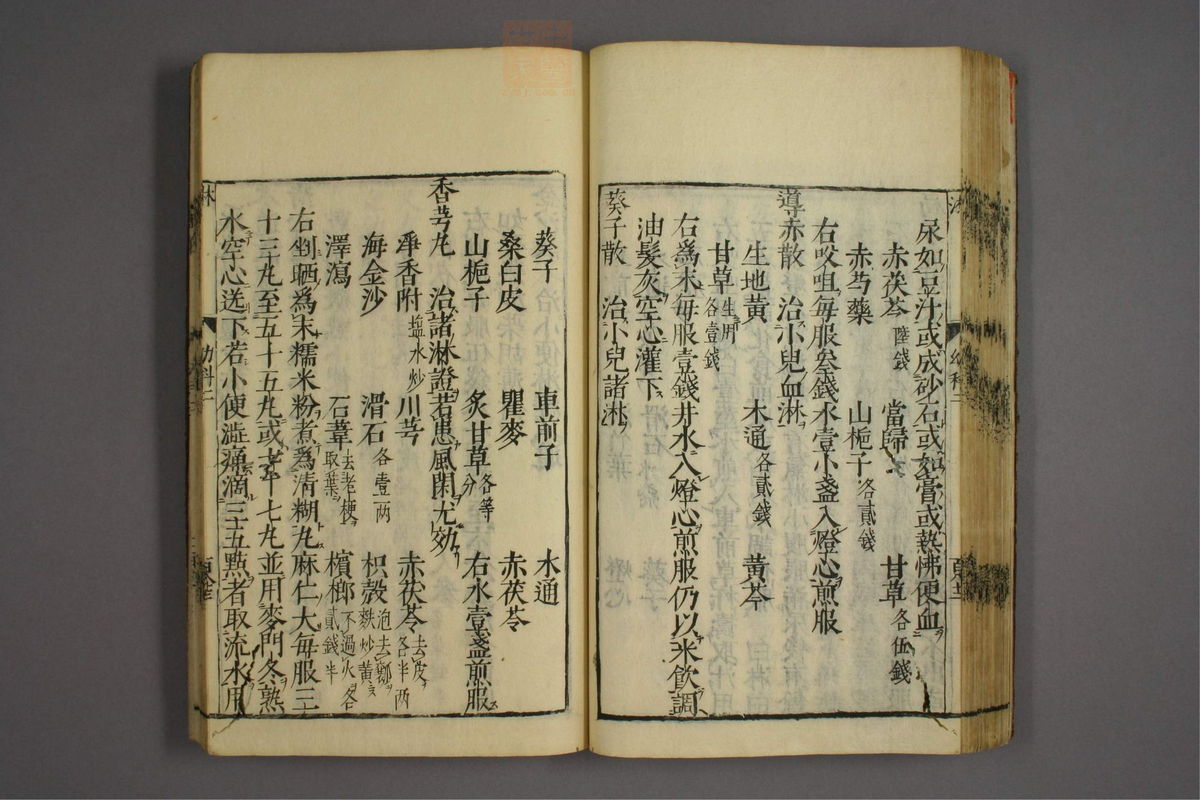 尿如豆汁或成砂石或如膏或熱怫便血
赤茯苓陸錢 當歸 甘草各伍錢
赤芍藥 山梔子各貳錢
右㕮咀每服叄錢水壹小盞入燈心煎服
導赤散 治小兒血淋
生地黃 木通各貳錢 黃芩
甘草生用各壹錢
右為末每服壹錢井水入燈心煎服仍以米飲調
油髮灰空心灌下
葵子散 治小兒諸淋
葵子 車前子 木通
桑白皮 瞿麥 赤茯苓
山梔子 炙甘草各等分 右水壹盞煎服
香芎丸 治諸淋證若患風閑尤効
香附塩水炒 川芎 赤茯苓去皮各半兩
海金沙 滑石各壹兩 枳殼泡去瓤麩炒黃
澤瀉 石葦去老梗取葉 檳榔不過火各貳錢半
右剉晒為末糯米粉煮為清糊丸麻仁大每服三
十三丸至五十五丸或七十七丸並用麥門冬熟
水空心送下若小便澁痛滴三五點者取流水用
幼科二